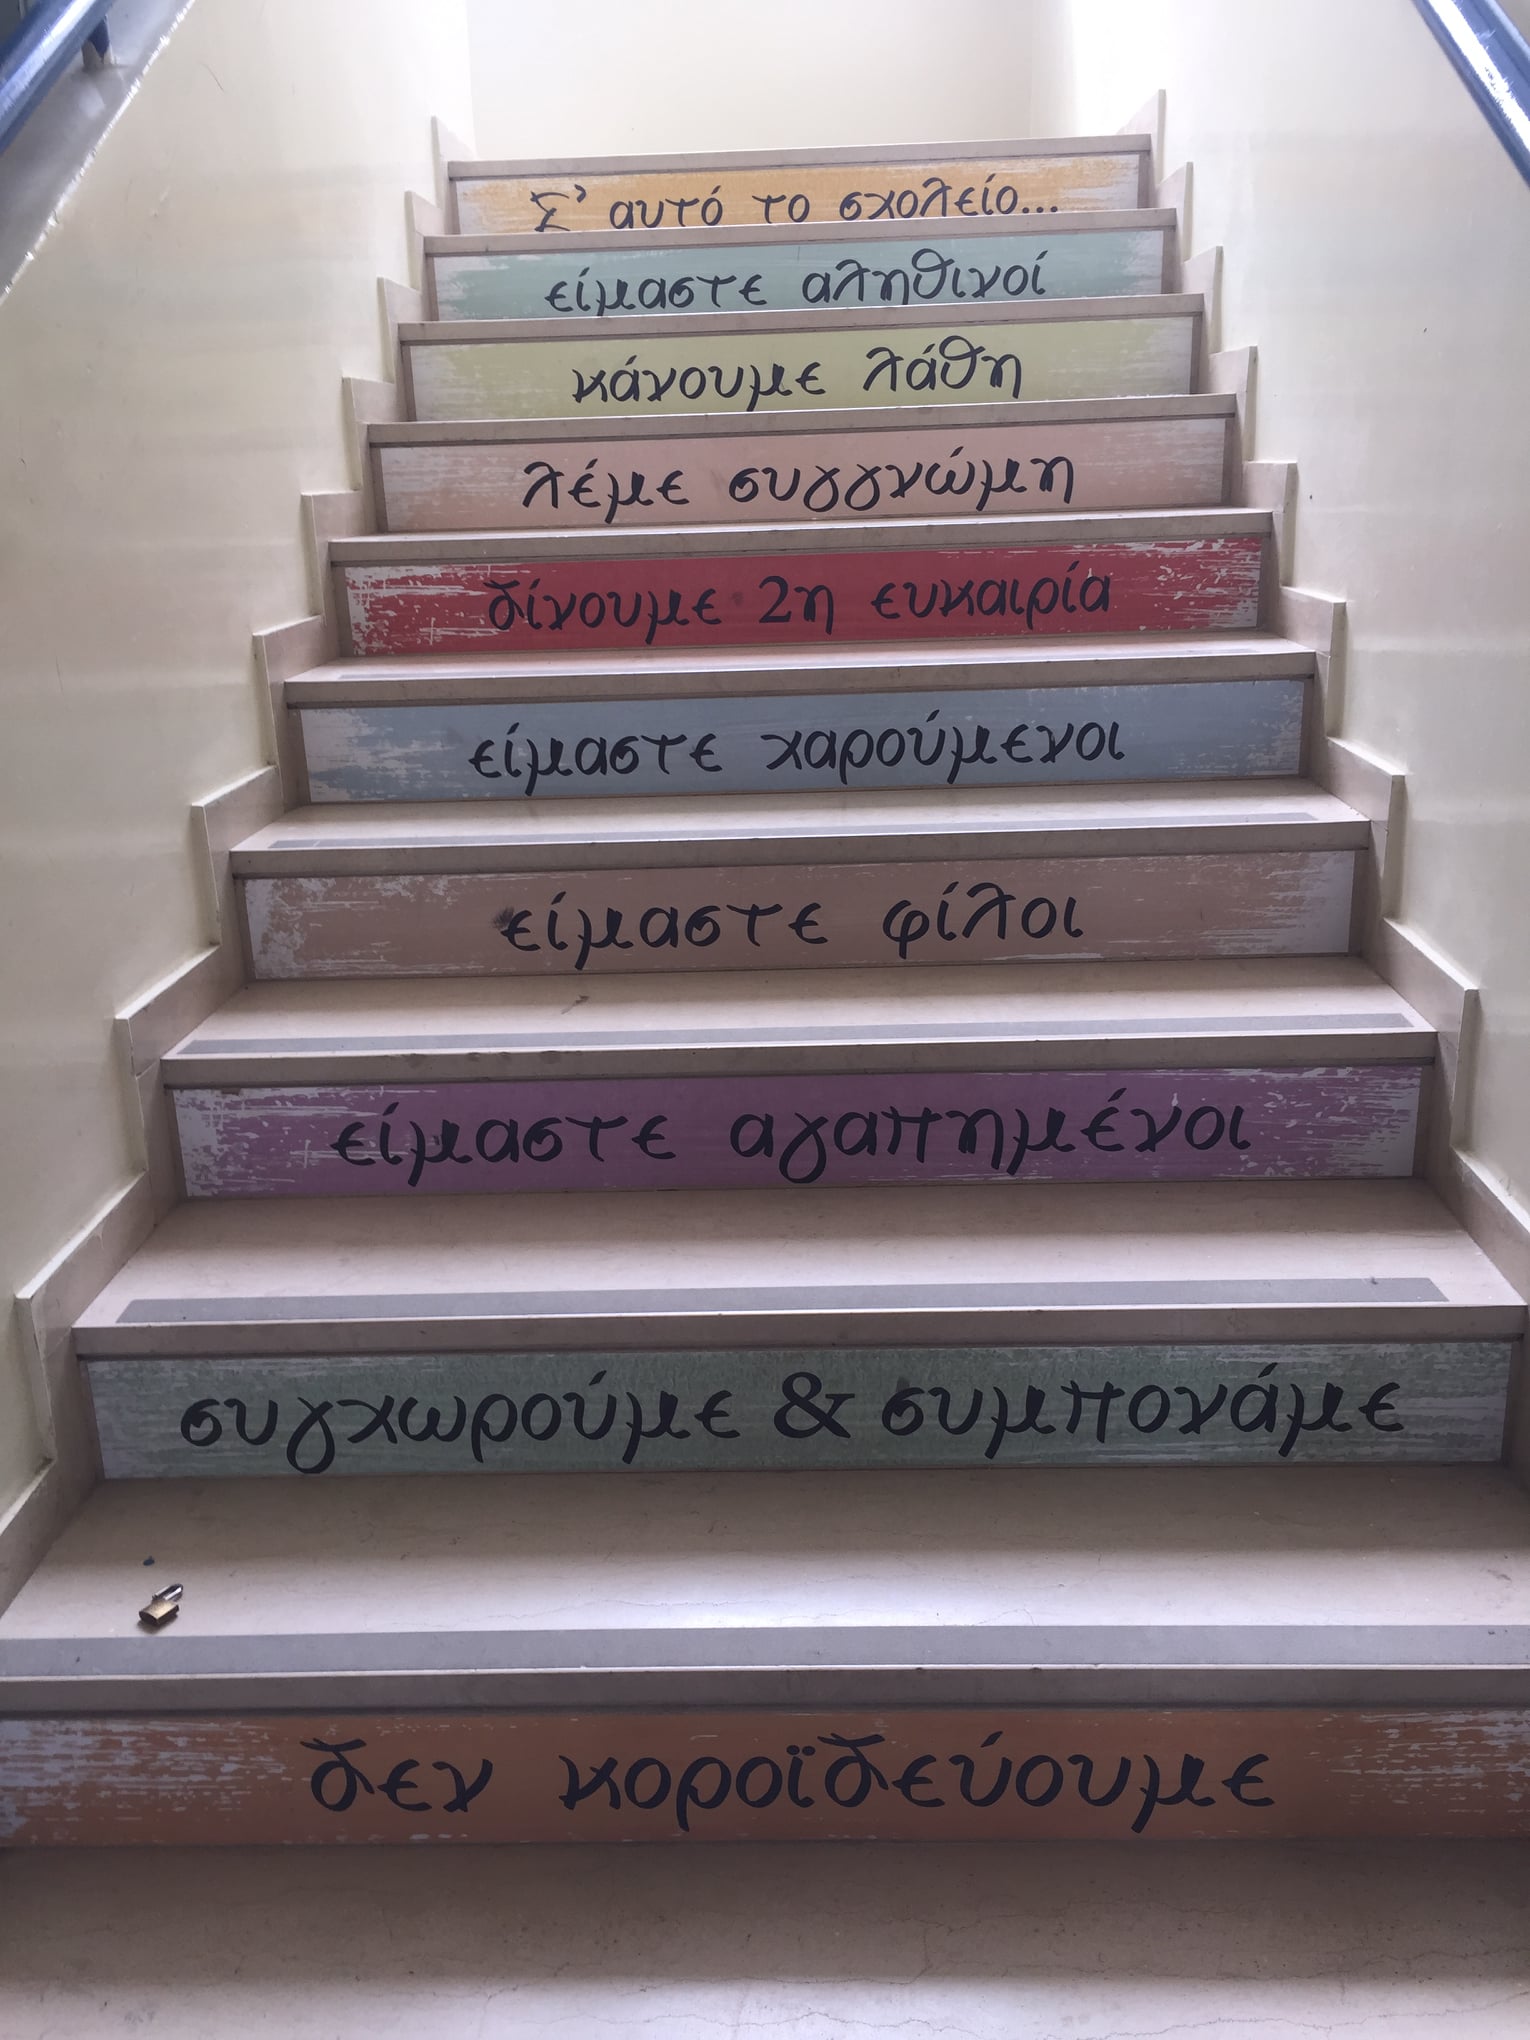 Σ' αυτό το σχολείο...
είμαστε αληθινοί
κάνουμε λάθη
λέμε συγγνώμη
δίνουμε 2η ευκαιρία
είμαστε χαρούμενοι
είμαστε φίλοι
είμαστε αγαπημένοι
συγχωρούμε & συμπονάμε
δεν κοροϊδεύουμε